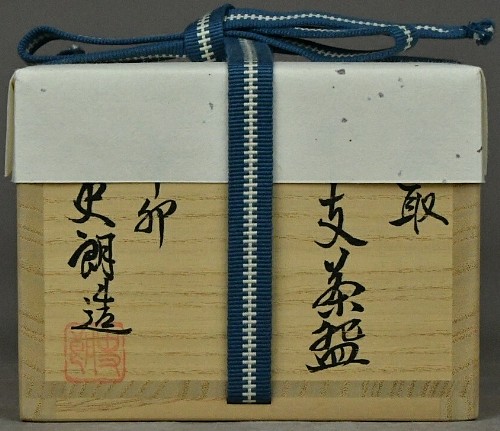 取
支茶盌
卯
史朗造
史朗